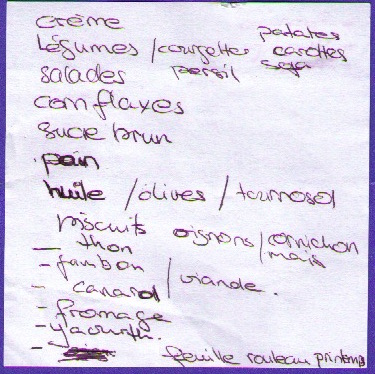 crème
patates
Légumes / courgettes carottes
salades persil soja
cornflaxes
sucre brun
pain
huile / olives / tournosol
biscuits oignons / cornichon
— thon maïs
- jambon / viande.
- canard
- fromage
- yaourth.
- feuille rouleau printemps